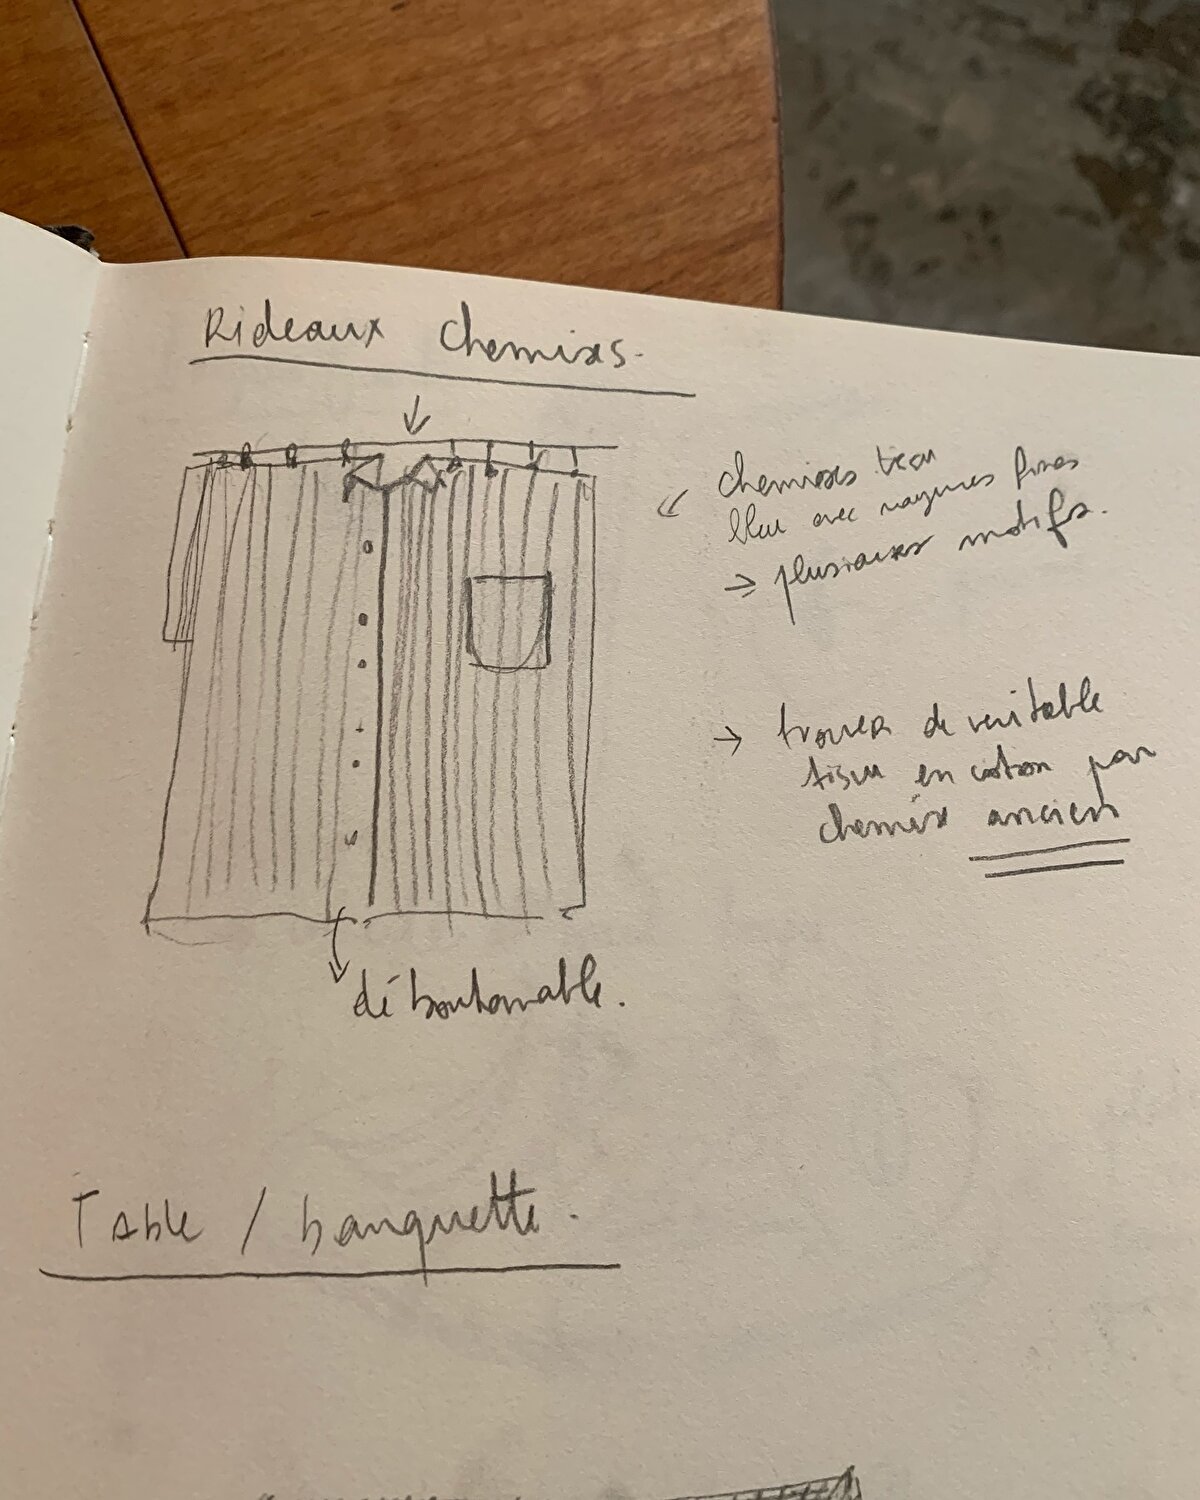 Rideaux chemises.
chemises bleu
bleu avec rayures fines
→ plusieurs motifs.
→ trouver de veritable
tissu en coton par
chemise ancien
déboutonnable.
Table / banquette.